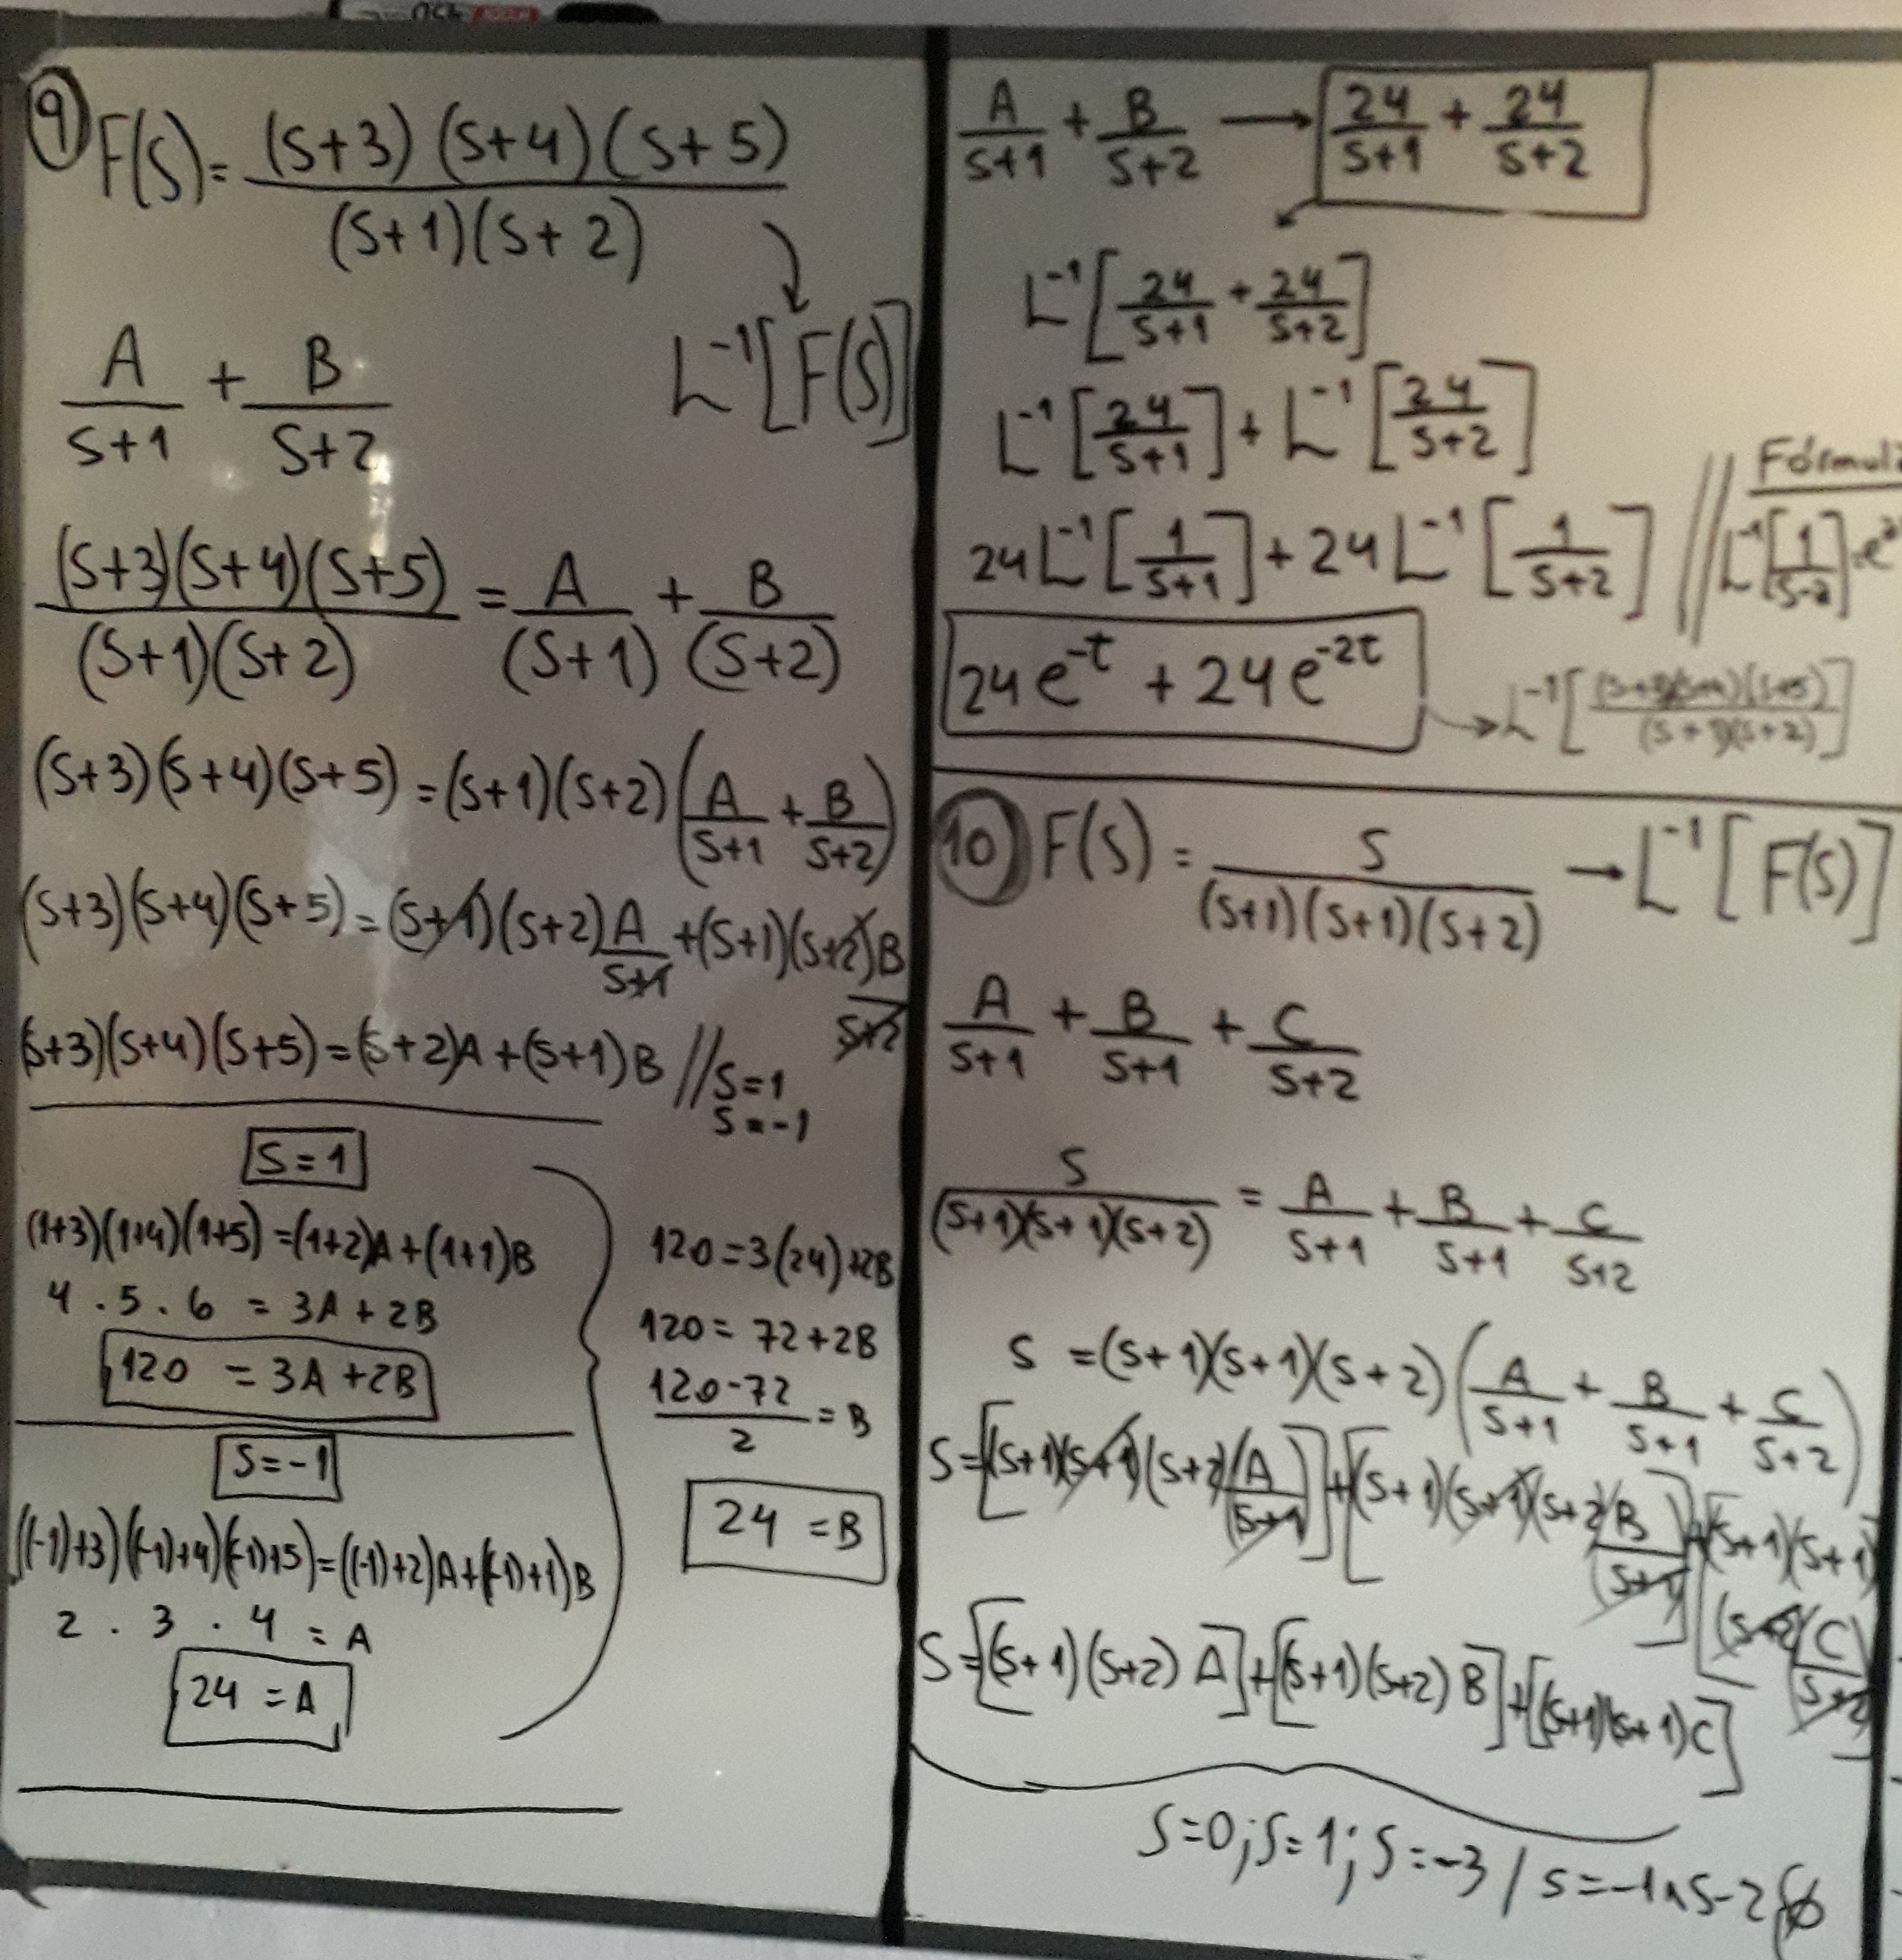 9 F(S) = (S+3)(S+4)(S+5) / (S+1)(S+2)
L⁻¹[F(S)]
A/S+1 + B/S+2
(S+3)(S+4)(S+5) / (S+1)(S+2) = A/(S+1) + B/(S+2)
(S+3)(S+4)(S+5) = (S+1)(S+2)(A/S+1 + B/S+2)
(S+3)(S+4)(S+5) = (S+1)(S+2)A/S+1 + (S+1)(S+2)B/S+2
(S+3)(S+4)(S+5) = (S+2)A + (S+1)B // S=1
S=-1
S=1
(1+3)(1+4)(1+5) = (1+2)A + (1+1)B
4 . 5 . 6 = 3A + 2B
120 = 3A + 2B
S=-1
((-1)+3)((-1)+4)((-1)+5) = ((-1)+2)A + ((-1)+1)B
2 . 3 . 4 = A
24 = A
120 = 3(24) + 2B
120 = 72 + 2B
120-72 / 2 = B
24 = B
A/S+1 + B/S+2 → 24/S+1 + 24/S+2
L⁻¹[24/S+1 + 24/S+2]
L⁻¹[24/S+1] + L⁻¹[24/S+2]
24L⁻¹[1/S+1] + 24L⁻¹[1/S+2]
24e^-t + 24e^-2t → L⁻¹[(S+3)(S+4)(S+5) / (S+1)(S+2)]
10 F(S) = S / (S+1)(S+1)(S+2) → L⁻¹[F(S)]
A/S+1 + B/S+1 + C/S+2
S / (S+1)(S+1)(S+2) = A/S+1 + B/S+1 + C/S+2
S = (S+1)(S+1)(S+2)(A/S+1 + B/S+1 + C/S+2)
S = [(S+1)(S+1)(S+2)(A/S+1)] + [(S+1)(S+1)(S+2)(B/S+1)] + [(S+1)(S+1)(S+2)(C/S+2)]
S = [(S+1)(S+2)A] + [(S+1)(S+2)B] + [(S+1)(S+1)C]
S=0; S=1; S=-3 / S=-1